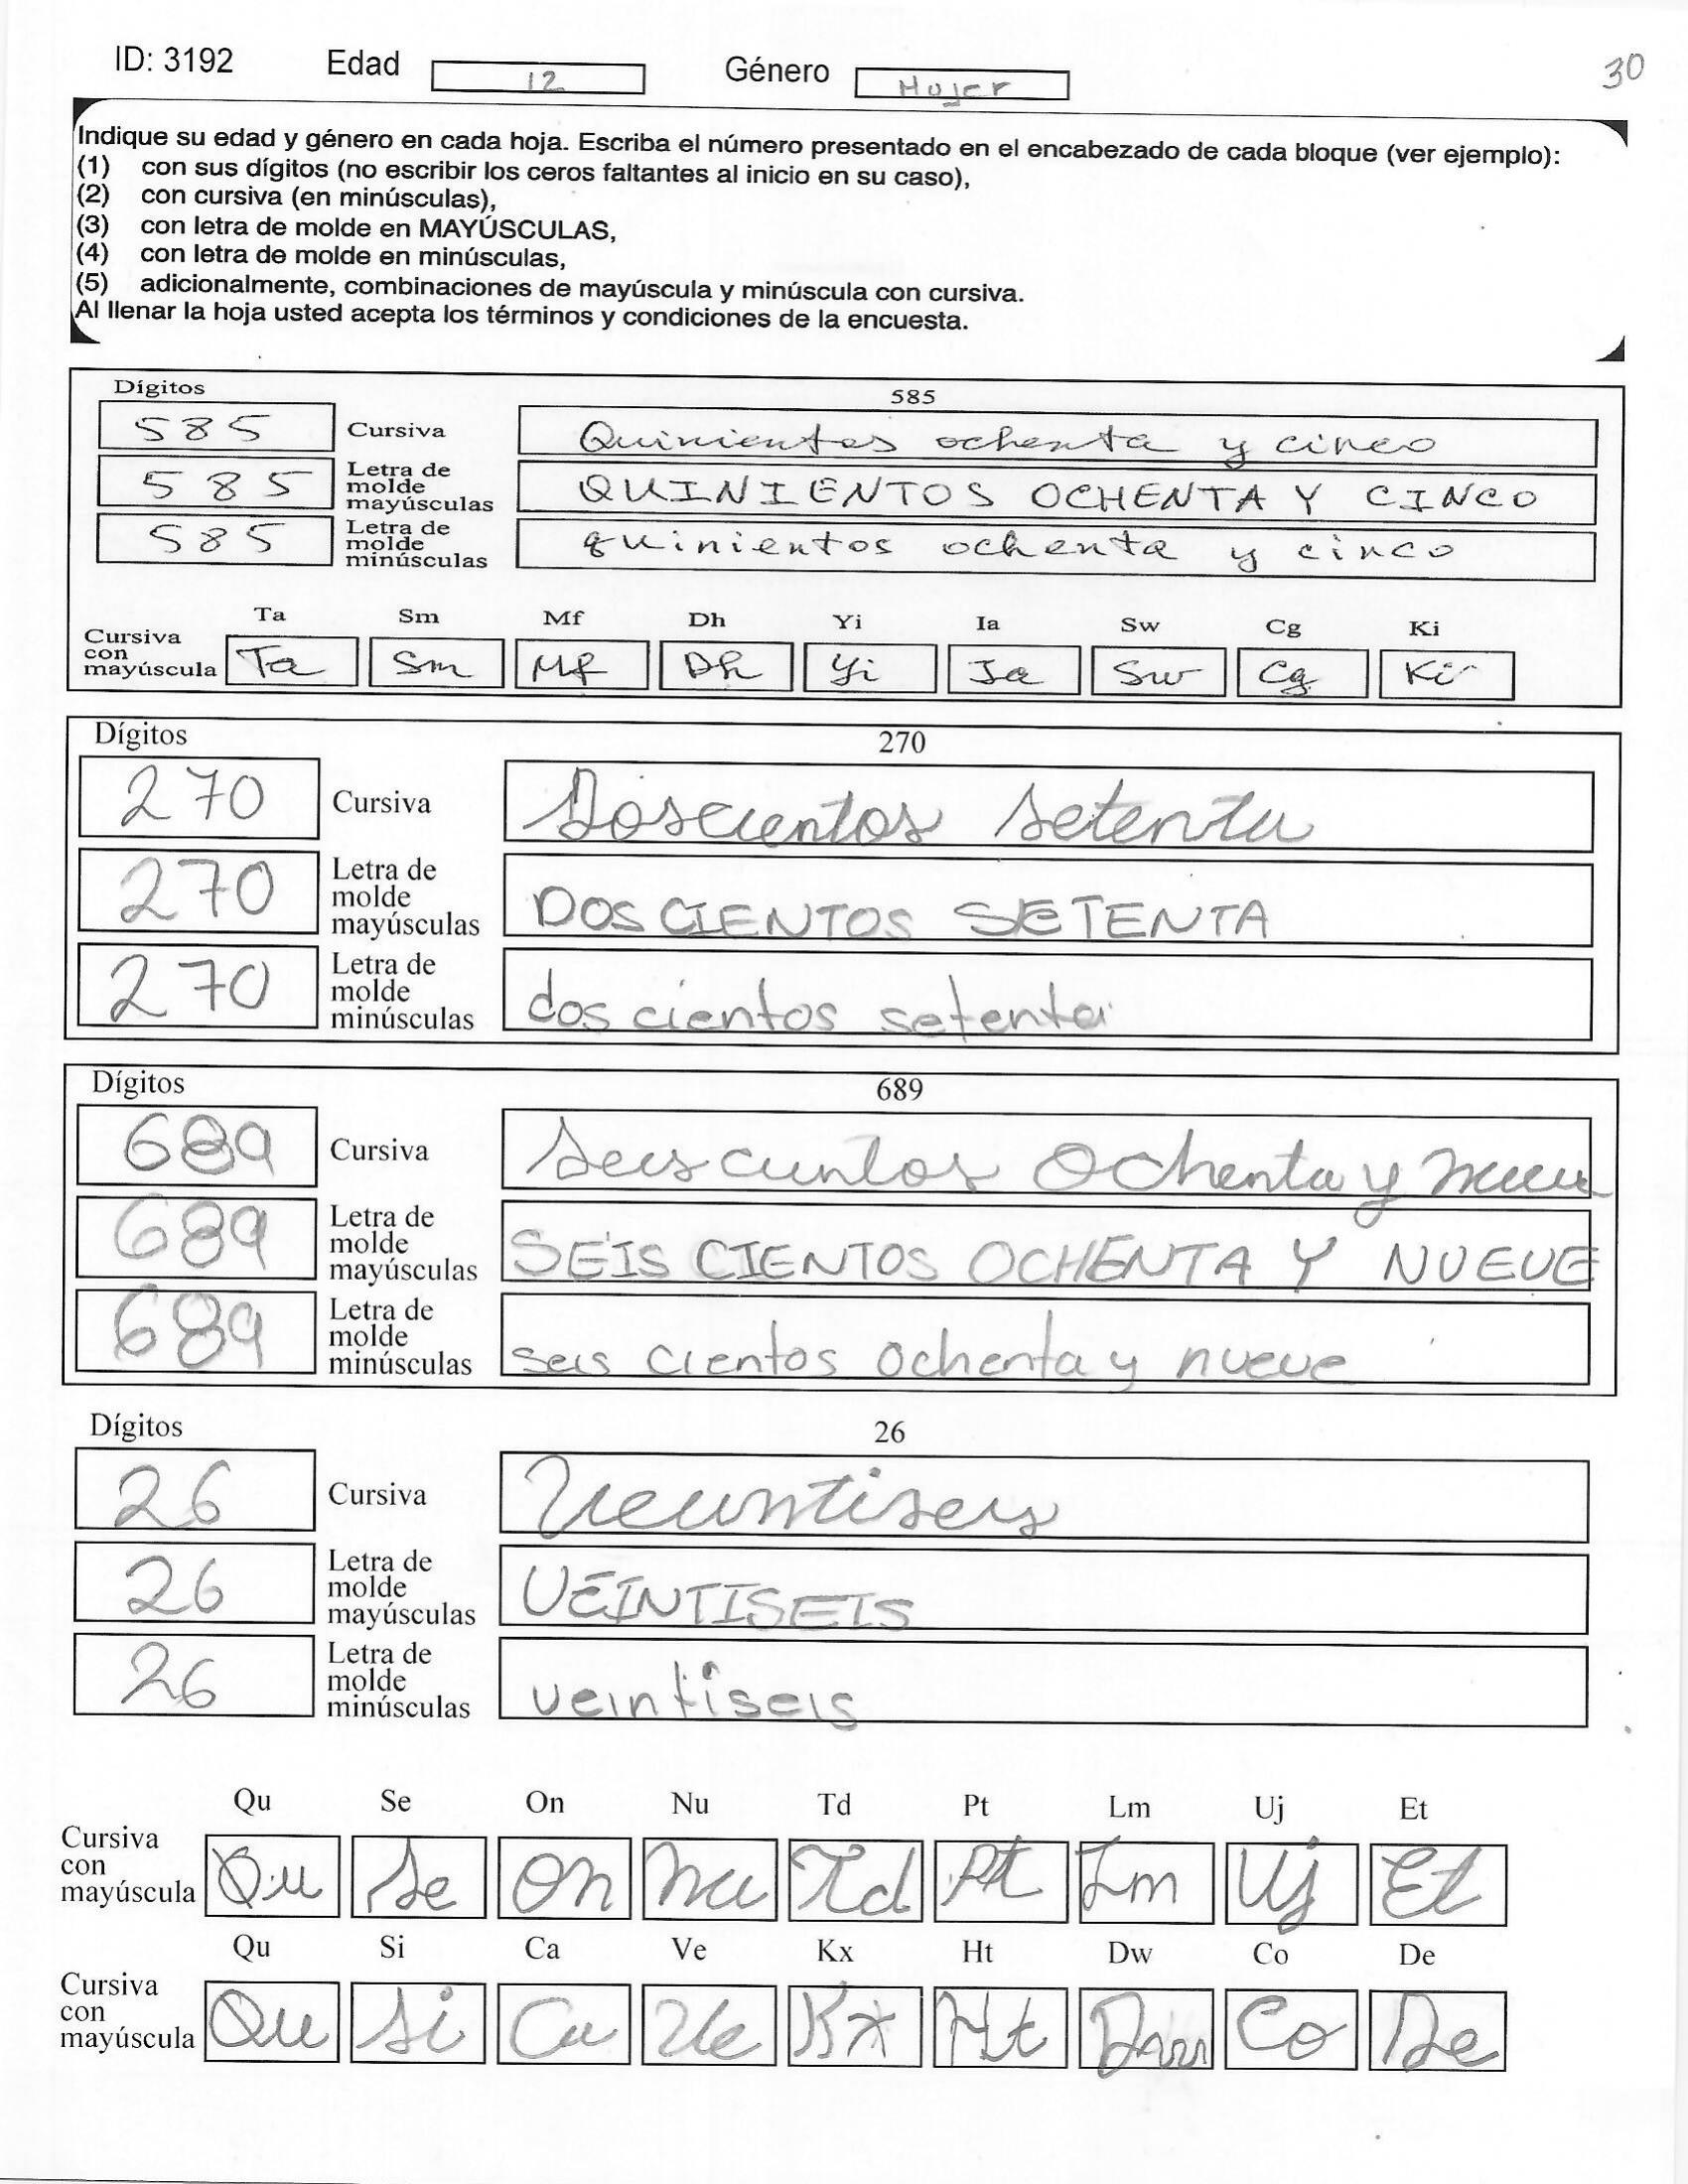 ID: 3192 Edad 12 Género Mujer 30
Indique su edad y género en cada hoja. Escriba el número presentado en el encabezado de cada bloque (ver ejemplo):
(1) con sus dígitos (no escribir los ceros faltantes al inicio en su caso),
(2) con cursiva (en minúsculas),
(3) con letra de molde en MAYÚSCULAS,
(4) con letra de molde en minúsculas,
(5) adicionalmente, combinaciones de mayúscula y minúscula con cursiva.
Al llenar la hoja usted acepta los términos y condiciones de la encuesta.
Dígitos 585
585 Cursiva Quinientos ochenta y cinco
585 Letra de molde mayúsculas QUINIENTOS OCHENTA Y CINCO
585 Letra de molde minúsculas quinientos ochenta y cinco
Ta Sm Mf Dh Yi Ia Sw Cg Ki
Cursiva con mayúscula Ta Sm Mf Dh Yi Ia Sw Cg Ki
Dígitos 270
270 Cursiva Doscientos setenta
270 Letra de molde mayúsculas DOS CIENTOS SETENTA
270 Letra de molde minúsculas dos cientos setenta
Dígitos 689
689 Cursiva Seis cientos Ochenta y nueve
689 Letra de molde mayúsculas SEIS CIENTOS OCHENTA Y NUEVE
689 Letra de molde minúsculas seis cientos ochenta y nueve
Dígitos 26
26 Cursiva Veintiseis
26 Letra de molde mayúsculas VEINTISEIS
26 Letra de molde minúsculas veintiseis
Qu Se On Nu Td Pt Lm Uj Et
Cursiva con mayúscula Qu Se On Nu Td Pt Lm Uj Et
Qu Si Ca Ve Kx Ht Dw Co De
Cursiva con mayúscula Qu Si Ca Ve Kx Ht Dw Co De